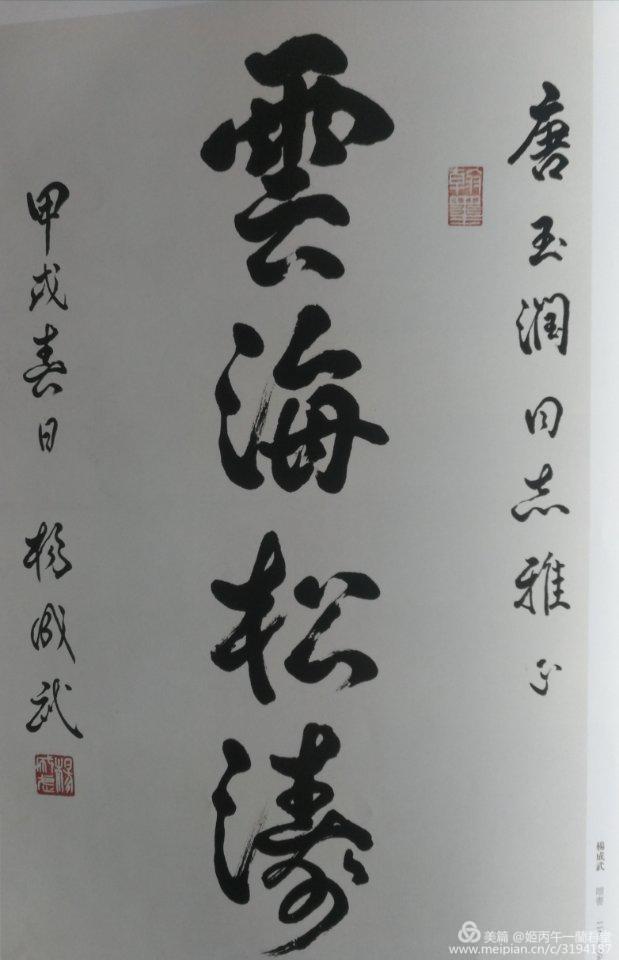 唐玉潤同志雅正
雲海松濤
甲戌春日 楊成武
楊成武
楊成武 贈書
美篇 @姬丙午一蘭若堂
www.meipian.cn/c/3194187